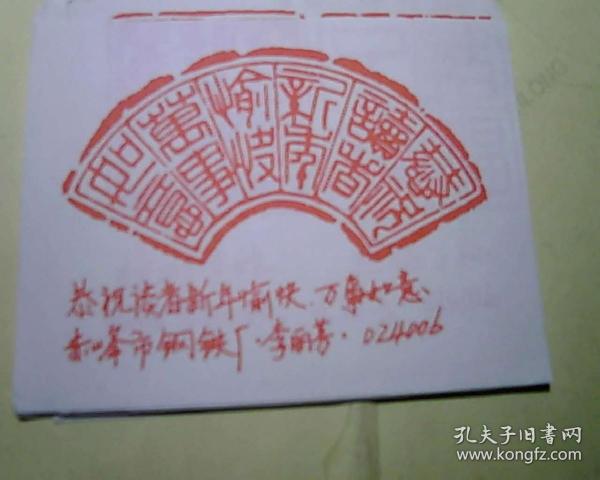 恭祝讀者新年愉快萬事如意
恭祝读者新年愉快.万事如意.
赤峰市钢铁厂.李丽芳.024006
孔夫子旧书网
www.kongfz.com